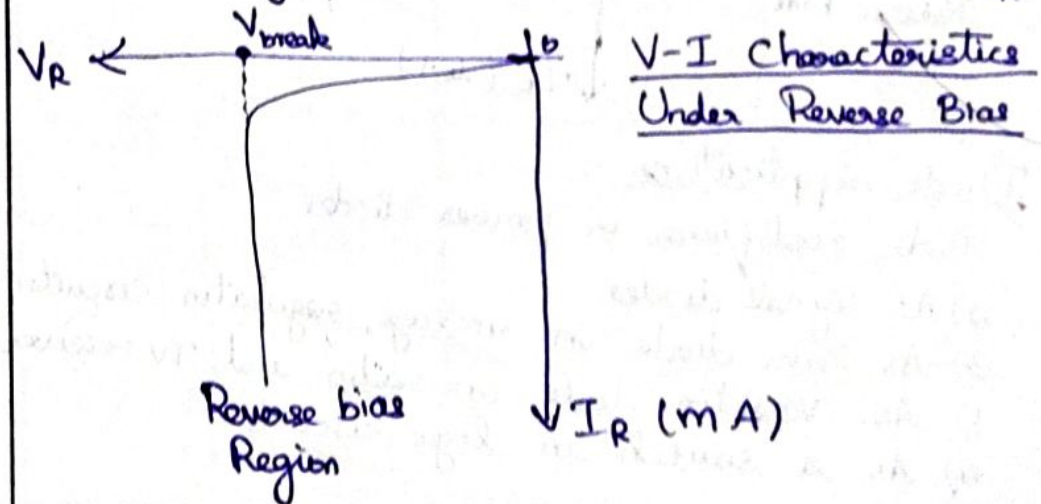 V break
V_R
0
V-I Characteristics
Under Reverse Bias
I_R (mA)
Reverse bias
Region